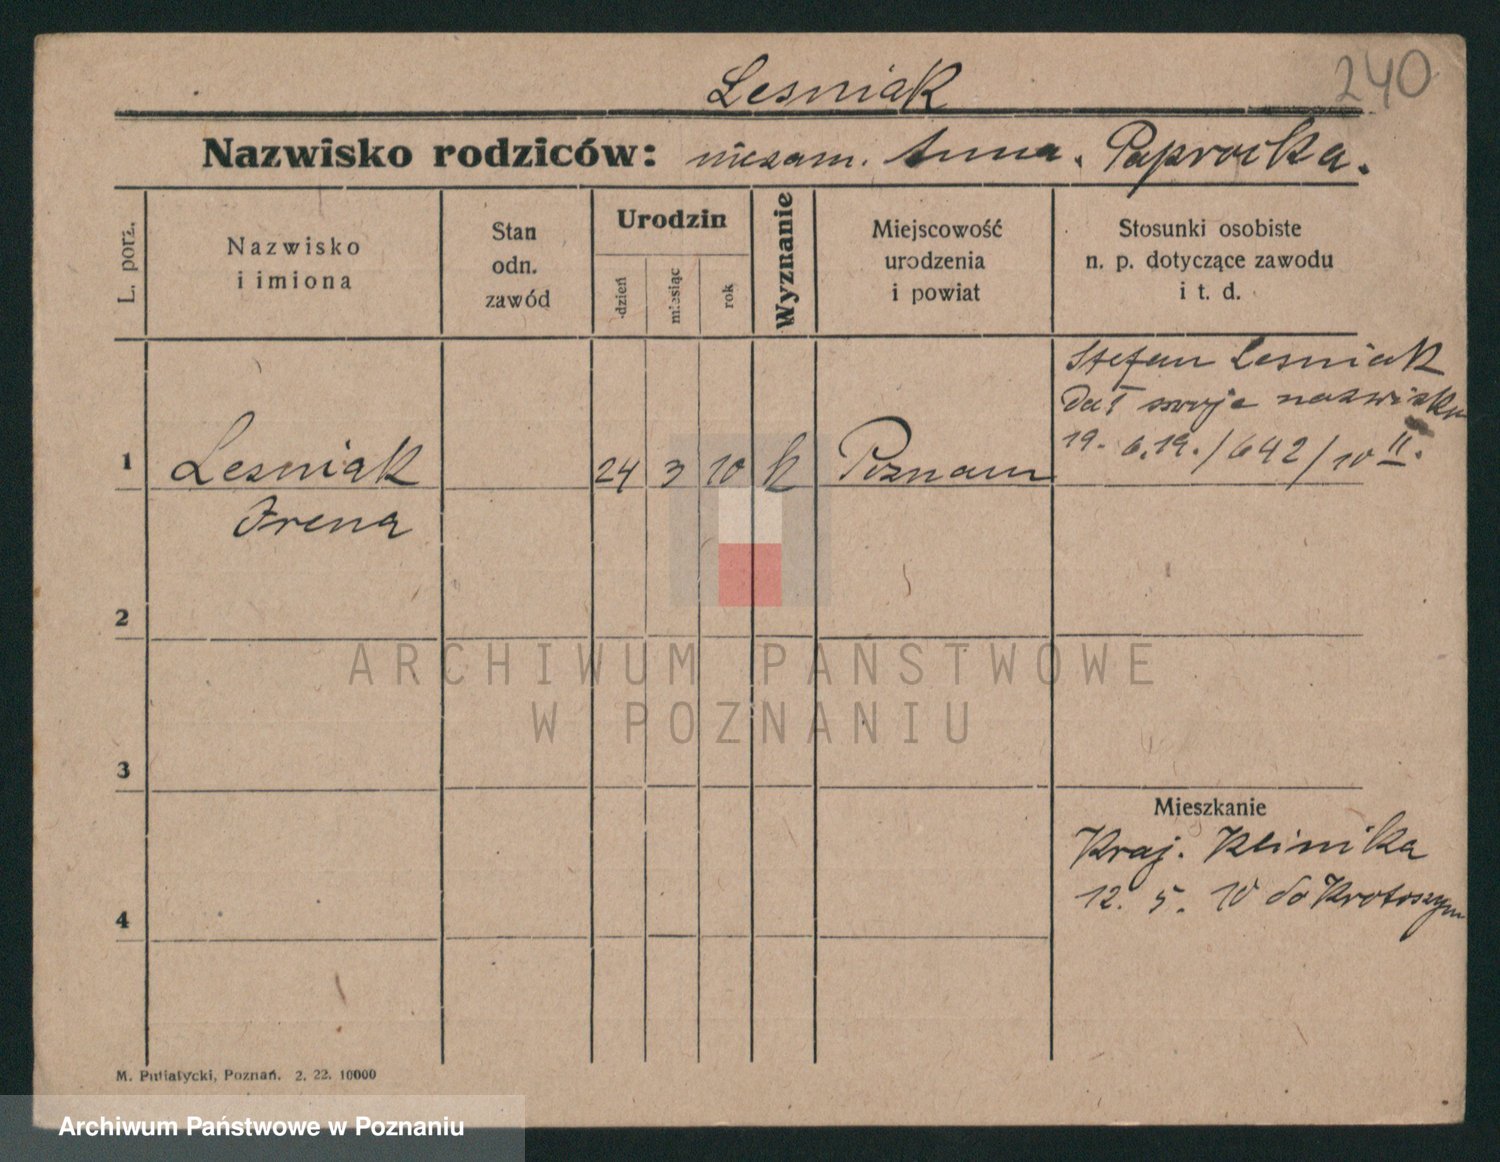 240
Lesniak
Nazwisko rodziców: niezam. Anna. Paprocka.
L. porz.
Nazwisko
i imiona
Stan
odn.
zawód
Urodzin
dzień
miesiąc
rok
Wyznanie
Miejscowość
urodzenia
i powiat
Stosunki osobiste
n. p. dotyczące zawodu
i t. d.
Stefan Lesniak
dał swoje nazwisko
19. 6. 19. / 642 / 10 II.
1 Lesniak 24 3 10 k Poznan
Irena
2
ARCHIWUM PAŃSTWOWE
W POZNANIU
3
Mieszkanie
Kraj. Klinika
12. 5. 10 do Krotoszyn
4
M. Putiatycki, Poznań. 2. 22. 10000
Archiwum Państwowe w Poznaniu